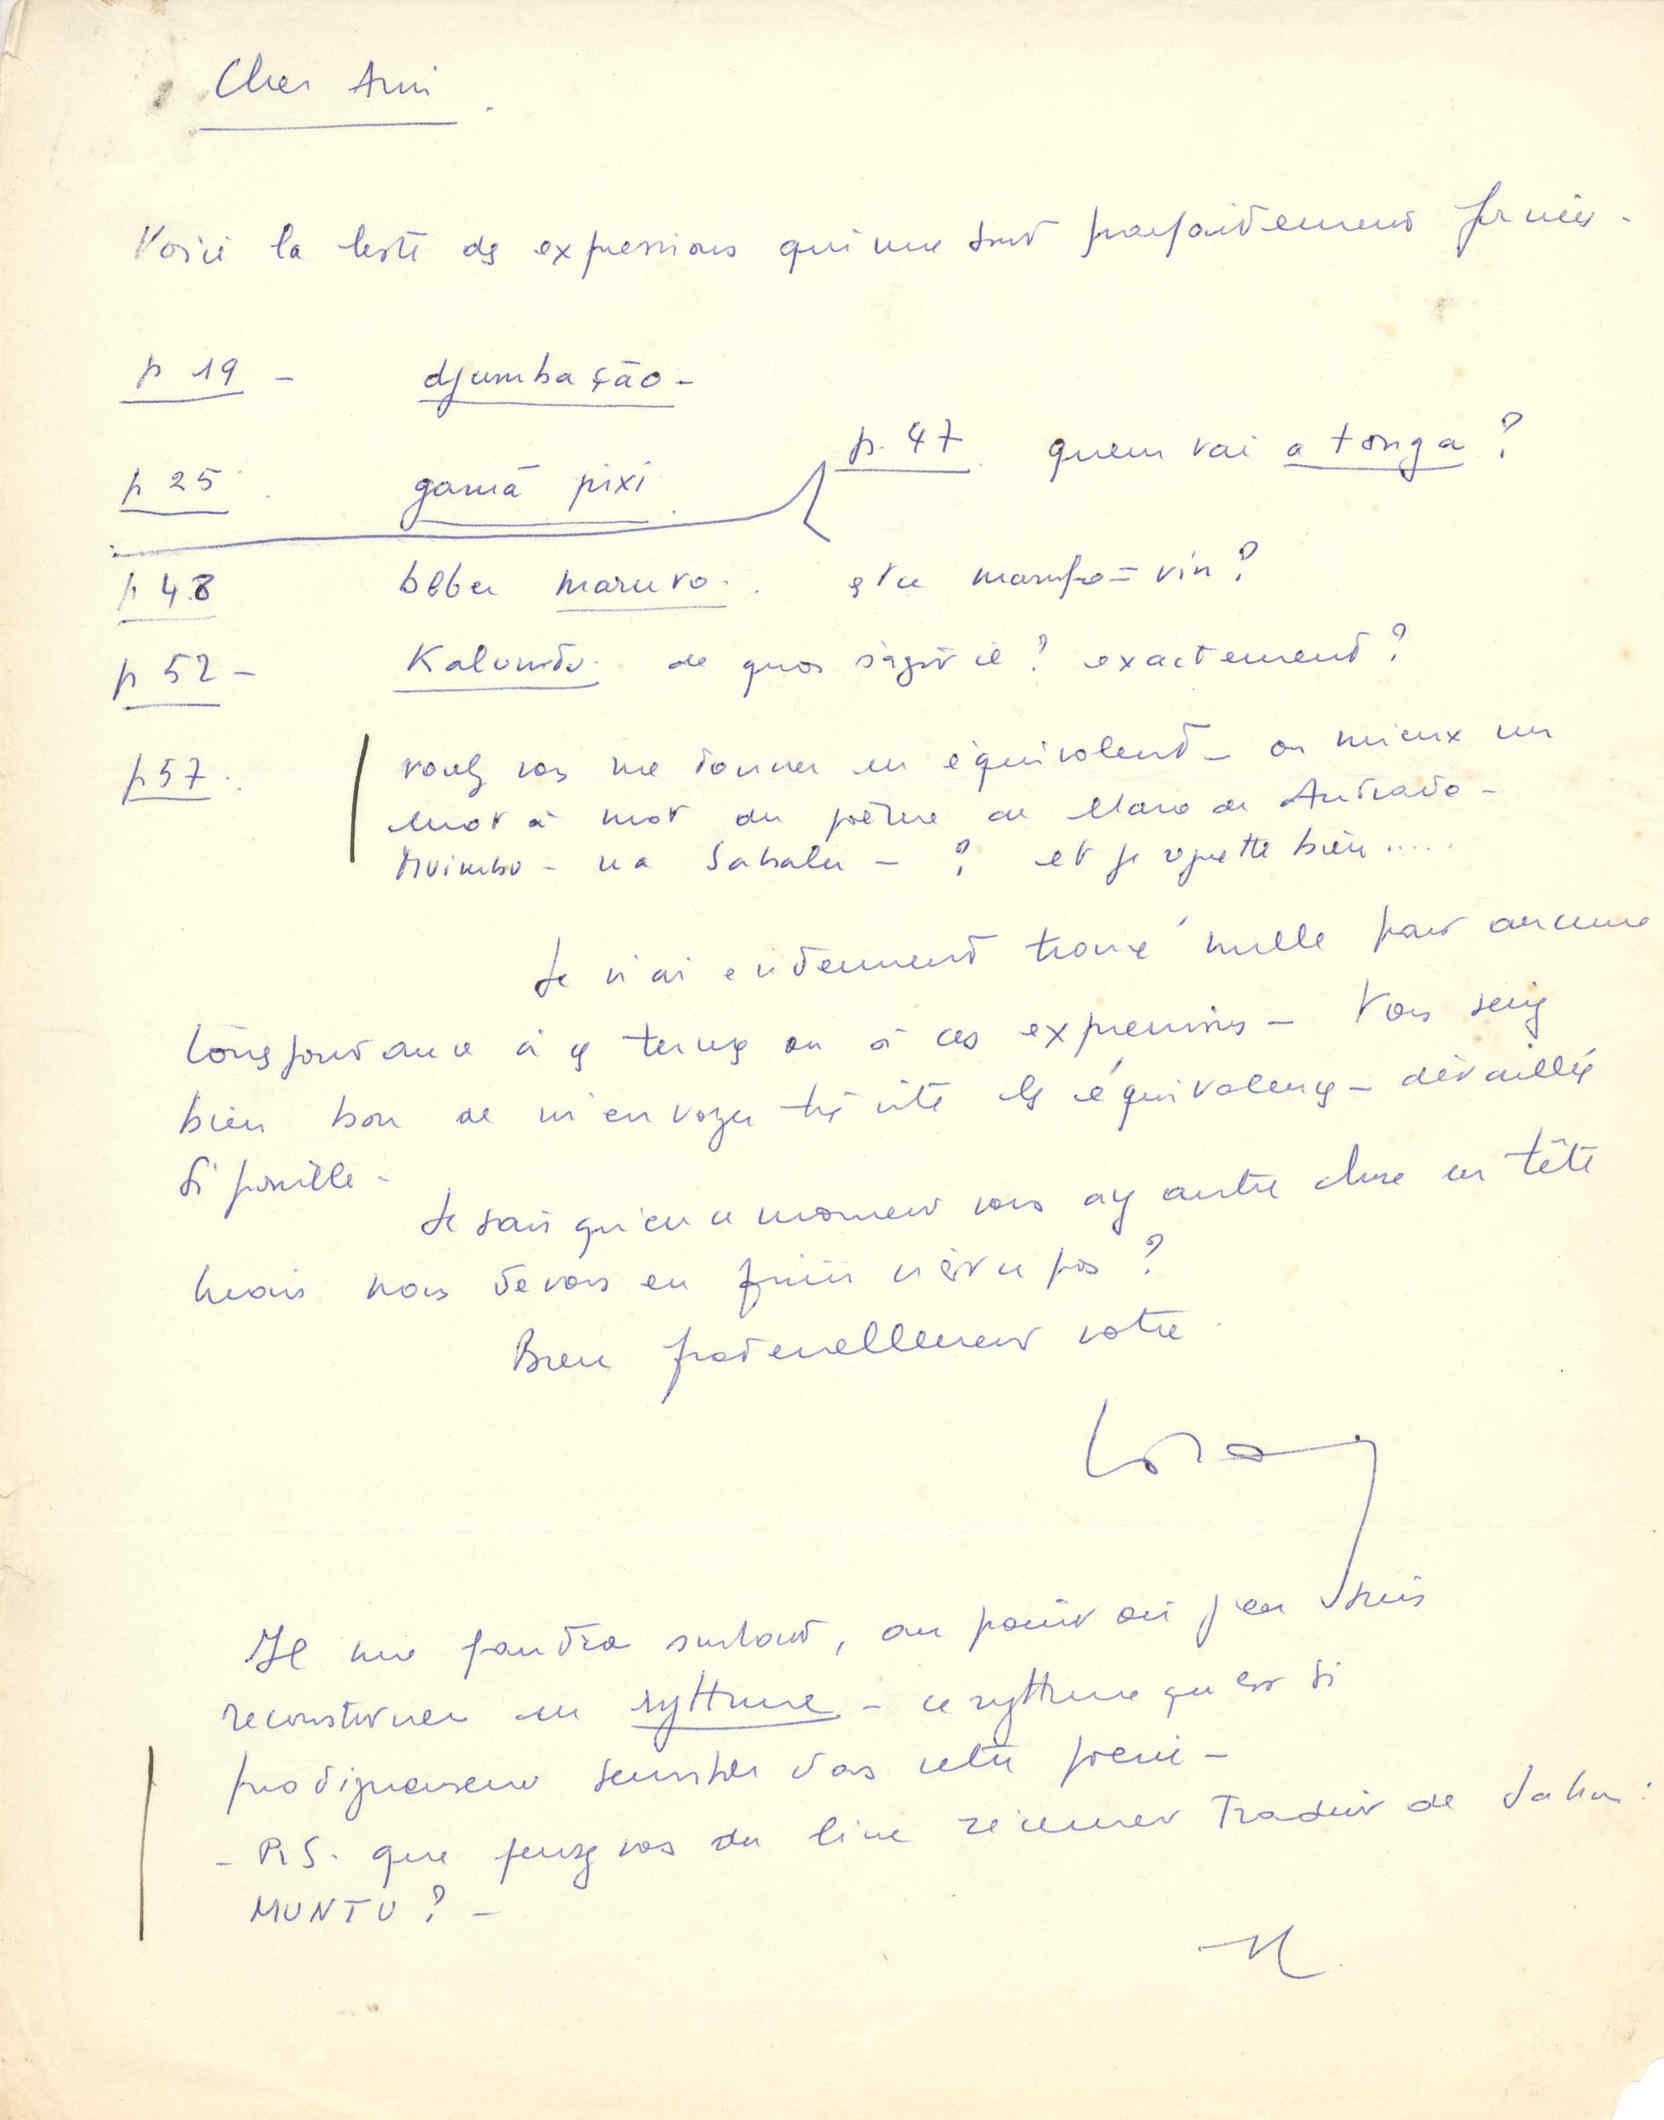 Cher Ami
Voici la liste des expressions qui me sont parfaitement fermées -
p 19 - djumbação -
p 25. gamã pixi.
p. 47 quem vai a tonga ?
p 48 beber maruvo. est ce marufo = vin ?
p 52 - Kalundu. de quoi s'agit il ? exactement ?
p 57. voulez vous me donner un équivalent - ou mieux un
mot à mot du poème de Mario de Andrade -
Muimbu - ua Sabalu - ? et je regrette bien .....
Je n'ai evidemment trouvé nulle part aucune
correspondance à ces termes ou à ces expressions - Vous seriez
bien bon de m'envoyer très vite les équivalences - détaillées
si possible -
Je sais qu'en ce moment vous avez autre chose en tête
mais nous devons en finir n'est ce pas ?
Bien fraternellement votre.
Il me faudra surtout, au point où j'en suis
reconstituer un rythme - ce rythme qui est si
prodigieusement sensible dans cette poésie -
- P.S. que pensez vous du livre récemment traduit de Jahn :
MUNTU ? -
M.